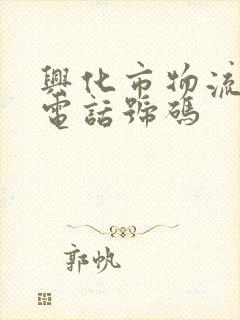 興化市物流
電話號碼
郭帆